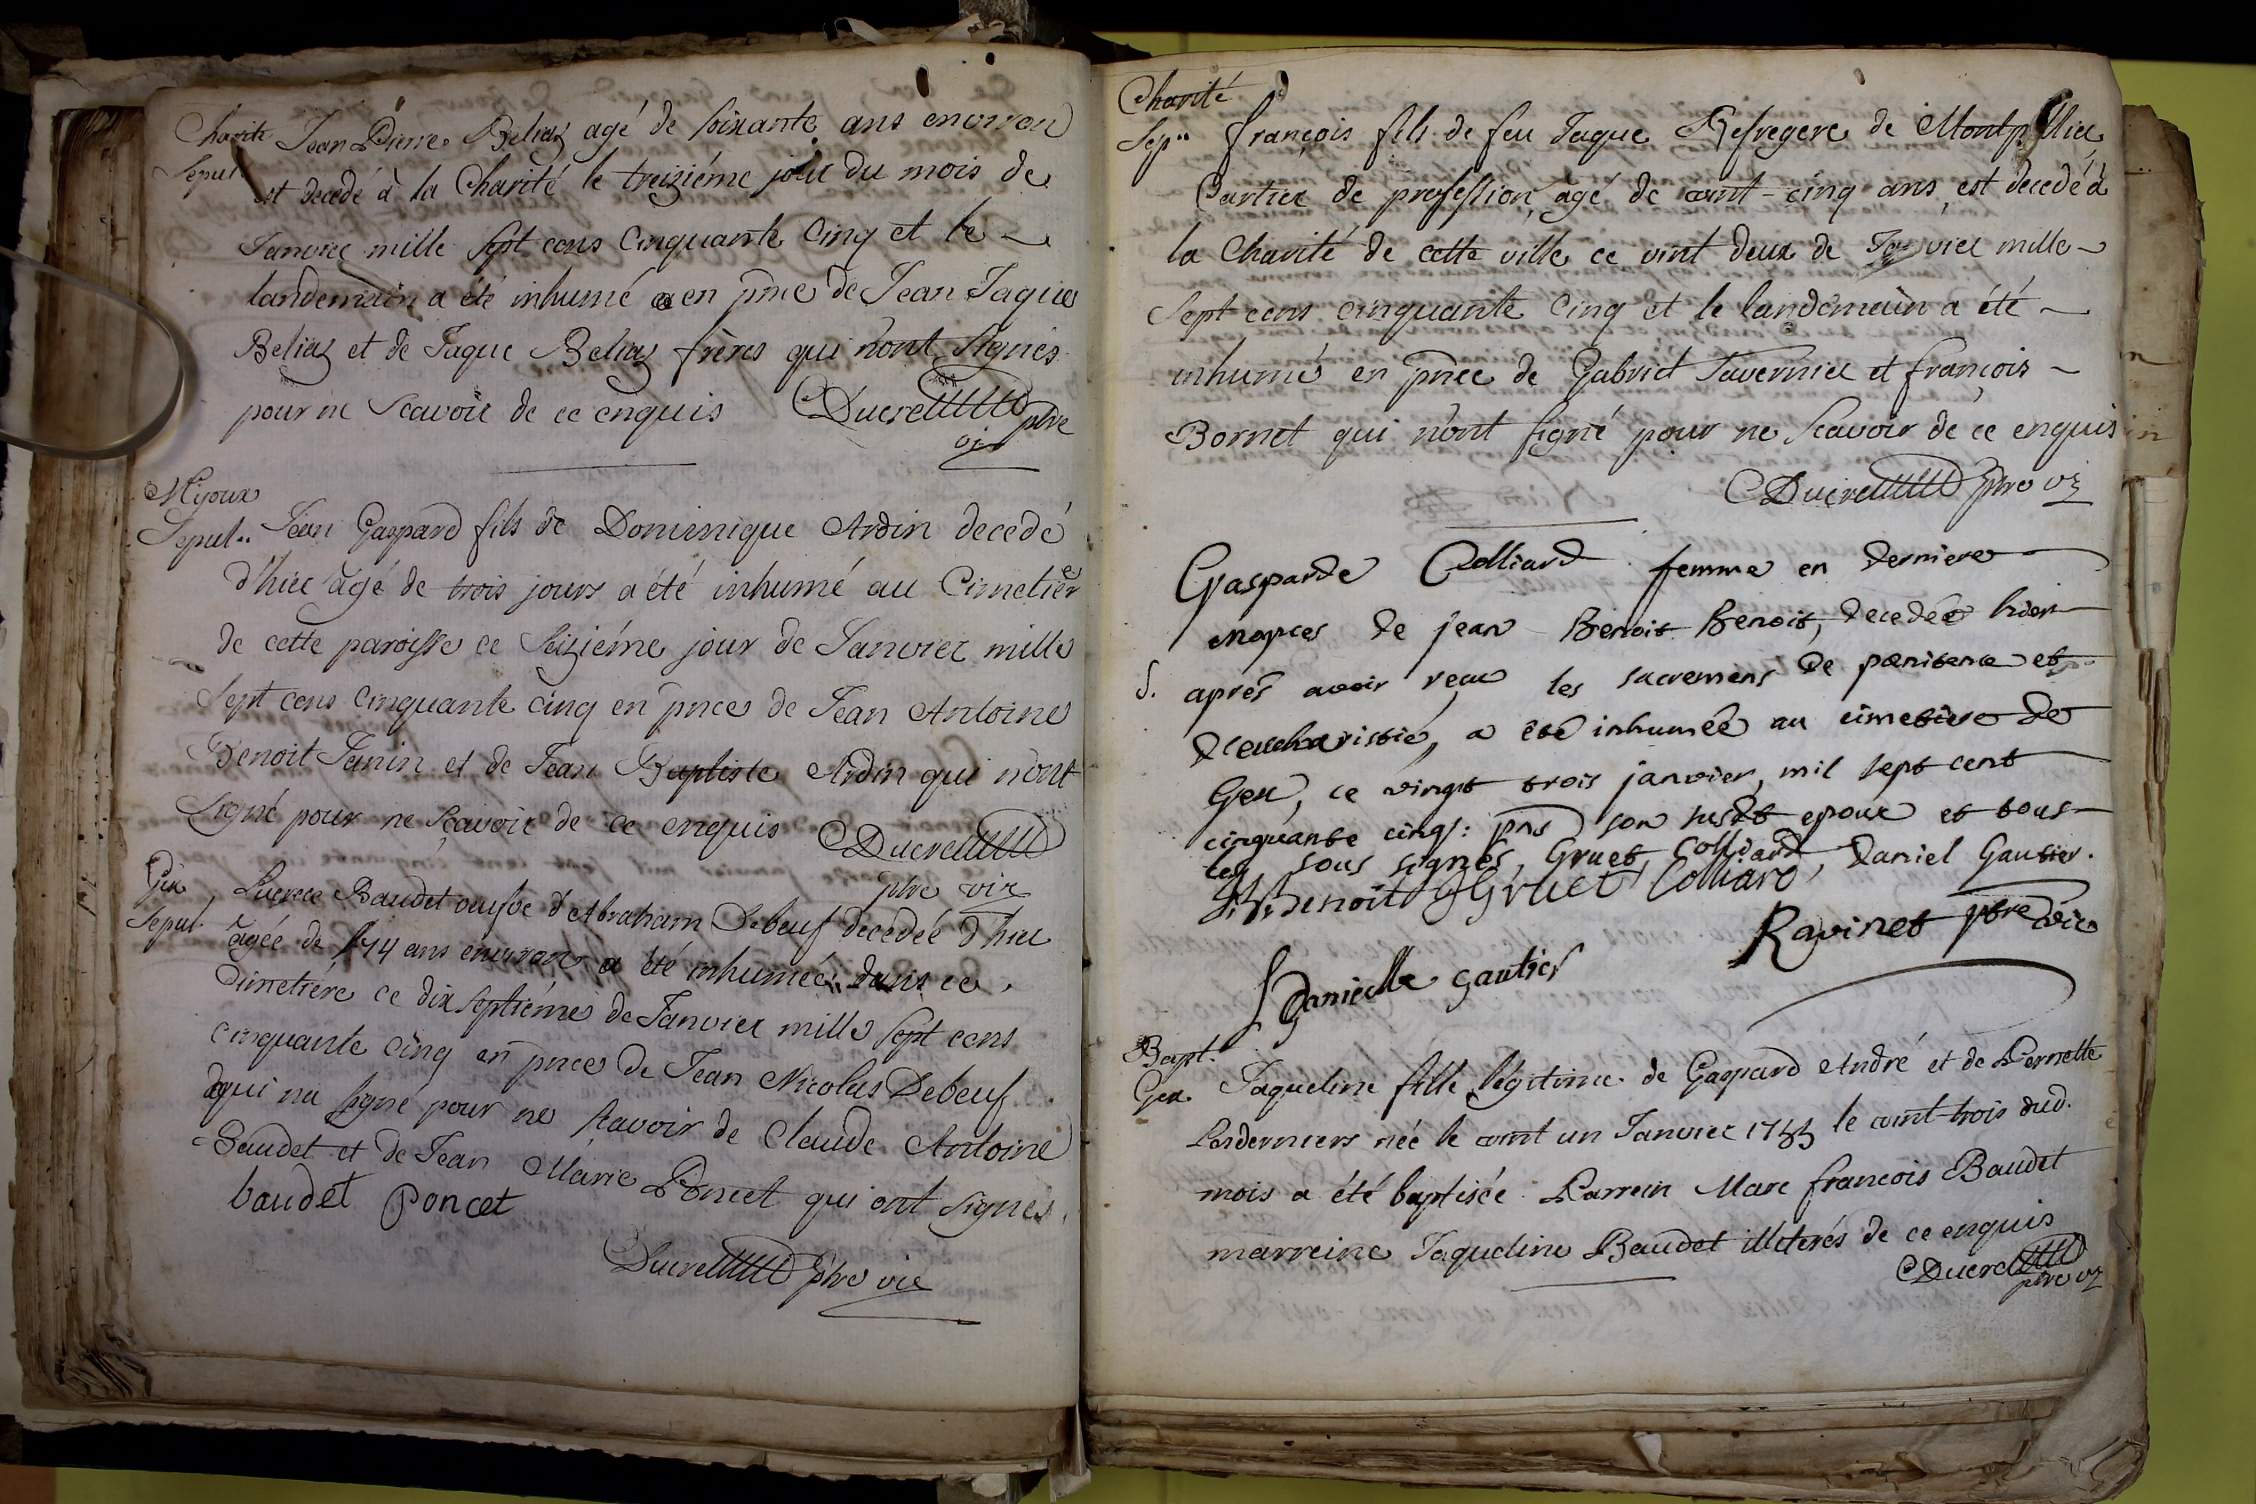 Charité Jean Pierre Beliaz agé de soixante ans environ
Sepul. est decedé à la Charité le treiziéme jour du mois de
Janvier mille sept cens cinquante cinq et le
landemain a été inhumé en pnce de Jean Jaque
Beliaz et de Jaque Beliaz frères qui n'ont signés
pour ne scavoir de ce enquis Ducret
ptre
vic
Mijoux
Sepul.. Jean Gaspard fils de Dominique Ardin decedé
d'hier âgé de trois jours a été inhumé au Cimetier
de cette paroisse ce seiziéme jour de Janvier mille
sept cens cinquante cinq en pnce de Jean Antoine
Benoit Janin et de Jean Baptiste Ardin qui n'ont
signé pour ne scavoir de ce enquis Ducret
ptre vic
Gex Lucrece Baudet d'Abraham Debeuf decedée d'hier
Sepul. âgée de 74 ans environ a été inhumée dans ce
cimetiére ce dix septiéme de Janvier mille sept cens
cinquante cinq en pnce de Jean Nicolas Debeuf
qui na signé pour ne scavoir de Claude Antoine
Baudet et de Jean Marie Poncet qui ont signes.
baudet Poncet
Ducret ptre vic
Charité
Sep.. François fils de feu Jaque Refregere de Montpellier
Cartier de profession, âgé de vint-cinq ans, est decedé à
la Charité de cette ville ce vint deux de Janvier mille
sept cens cinquante cinq et le landemain a été
inhumé en pnce de Gabriel Tavernier et françois
Bornet qui n'ont signé pour ne scavoir de ce enquis
Ducret ptre vic
Gasparde Colliard femme en derniere
nopces de jean Benoit Benoit, decedée hier
S. aprés avoir reçu les sacremens de pœnitence et
d'eucharistie, a êté inhumée au cimetiere de
Gex, ce vingt trois janvier, mil sept cent
cinquante cinq: pns son susdt epoux et tous
les sous signés, Gruet, Colliard, Daniel Gautier.
Benoit Gruet Colliard
Ravinet ptre vic
Danielle gautier
Bapt.
Gex. Jaqueline fille légitime de Gaspard André et de Pernette
née le vint un Janvier 1755 le vint-trois dud.
mois a été baptisée Parrein Marc francois Baudet
marreine Jaqueline Baudet illiterés de ce enquis
Ducret
ptre vic